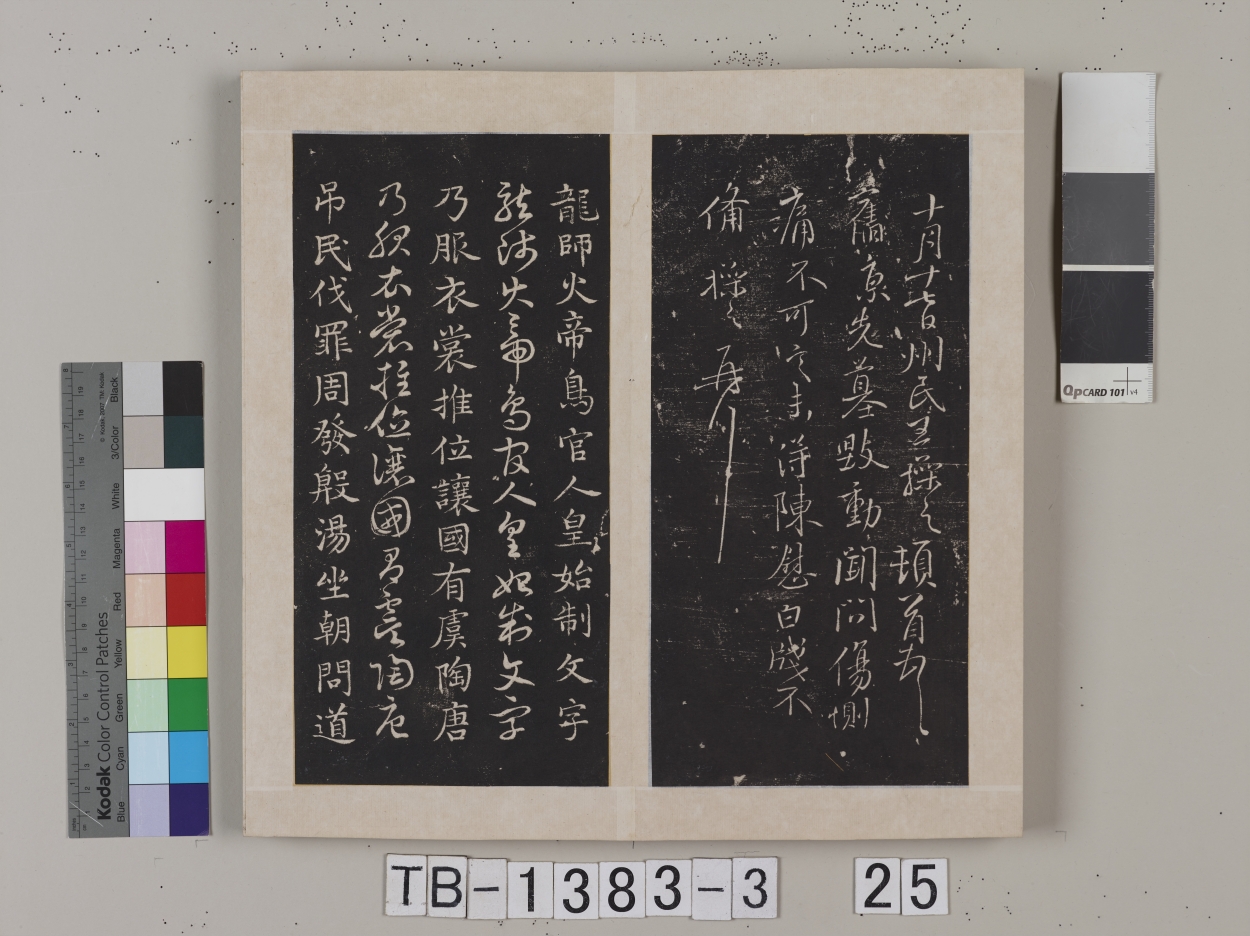 十月廿七日州民王操之頓首
舊京先墓毀動聞問傷惻
痛不可言未得陳慰白牋不
備操之再拜
龍師火帝鳥官人皇始制文字
龍師火帝鳥官人皇始制文字
乃服衣裳推位讓國有虞陶唐
乃服衣裳推位讓國有虞陶唐
吊民伐罪周發殷湯坐朝問道
TB-1383-3 25
QpCARD 101 v4
Kodak Color Control Patches
© Kodak, 2007, TM: Kodak
Black
3/Color
White
Magenta
Red
Yellow
Green
Cyan
Blue